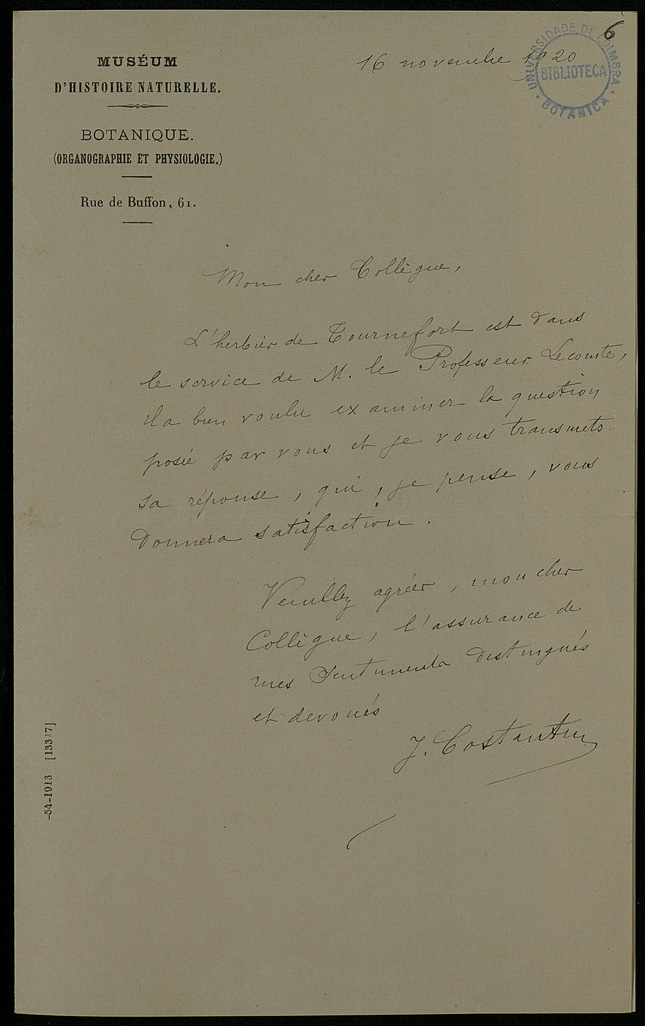 6
MUSÉUM
D'HISTOIRE NATURELLE.
BOTANIQUE.
(ORGANOGRAPHIE ET PHYSIOLOGIE.)
Rue de Buffon, 61.
16 novembre 1920
UNIVERSIDADE DE COIMBRA
BIBLIOTECA
BOTANICA
Mon cher Collègue,
L'herbier de Tournefort est dans
le service de M. le Professeur Lecomte,
il a bien voulu examiner la question
posée par vous et je vous transmets
sa réponse, qui, je pense, vous
donnera satisfaction.
Veuillez agréer, mon cher
Collègue, l'assurance de
mes sentiments distingués
et dévoués
J. Costantin
-54-1913 [13327]